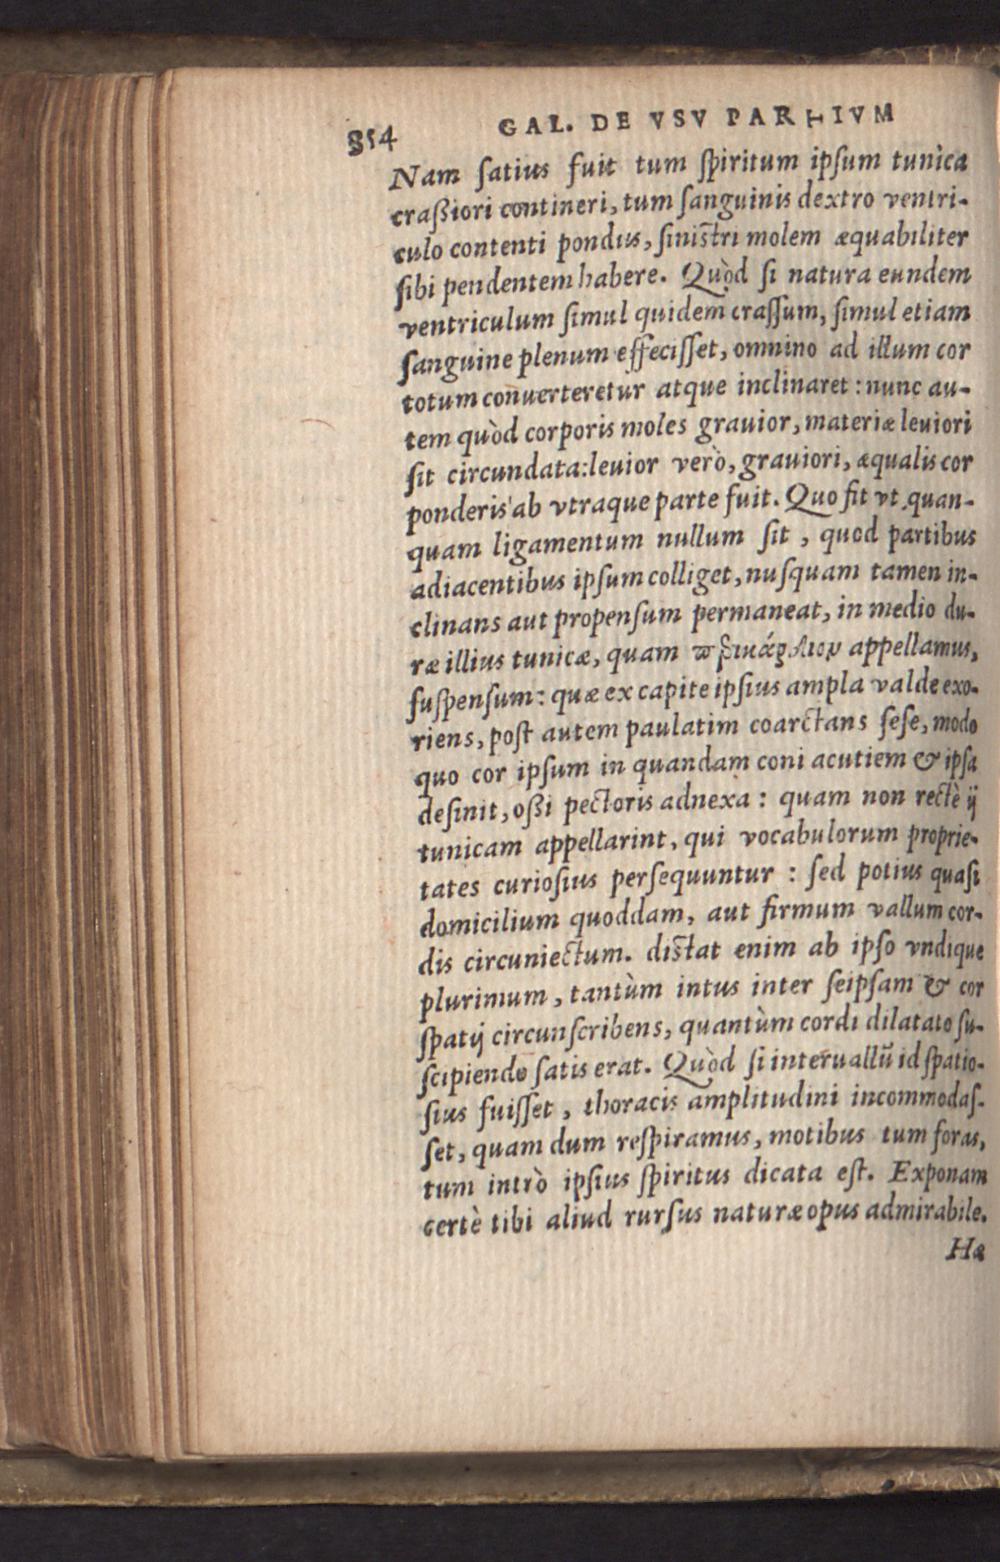 354 GAL. DE VSV PARTIVM
Nam ſatius fuit tum ſpiritum ipſum tunìca
craßiori contineri, tum ſanguinis dextro ventri-
culo contenti pondus, ſiniſtri molem æquabiliter
ſibi pendentem habere. Quòd ſi natura eundem
ventriculum ſimul quidem craſſum, ſimul etiam
ſanguine plenum effeciſſet, omnino ad illum cor
totum conuerteretur atque inclinaret: nunc au-
tem quòd corporis moles grauior, materiæ leuiori
ſit circundata: leuior verò, grauiori, æqualis cor
ponderis ab vtraque parte fuit. Quo fit vt quan-
quam ligamentum nullum ſit, quod partibus
adiacentibus ipſum colliget, nuſquam tamen in-
clinans aut propenſum permaneat, in medio du-
ræ illius tunicæ, quam περικάρδιον appellamus,
ſuſpenſum: quæ ex capite ipſius ampla valde exo-
riens, poſt autem paulatim coarctans ſeſe, modo
quo cor ipſum in quandam coni acutiem & ipſa
deſinit, oßi pectoris adnexa: quam non rectè ij
tunicam appellarint, qui vocabulorum proprie-
tates curioſius perſequuntur: ſed potius quaſi
domicilium quoddam, aut firmum vallum cor-
dis circuniectum. diſtat enim ab ipſo vndique
plurimum, tantùm intus inter ſeipſam & cor
ſpatij circunſcribens, quantùm cordi dilatato ſu-
ſcipiendo ſatis erat. Quòd ſi interuallũ id ſpatio-
ſius fuiſſet, thoracis amplitudini incommodaſ-
ſet, quam dum reſpiramus, motibus tum foras,
tum intrò ipſius ſpiritus dicata eſt. Exponam
certè tibi aliud rurſus naturæ opus admirabile.
Hæ